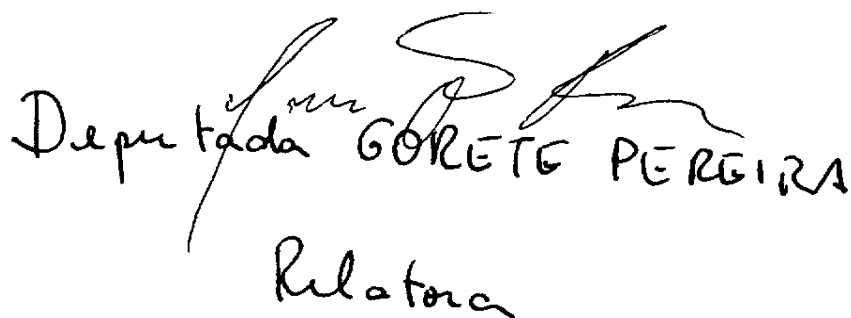 Deputada GORETE PEREIRA
Relatora